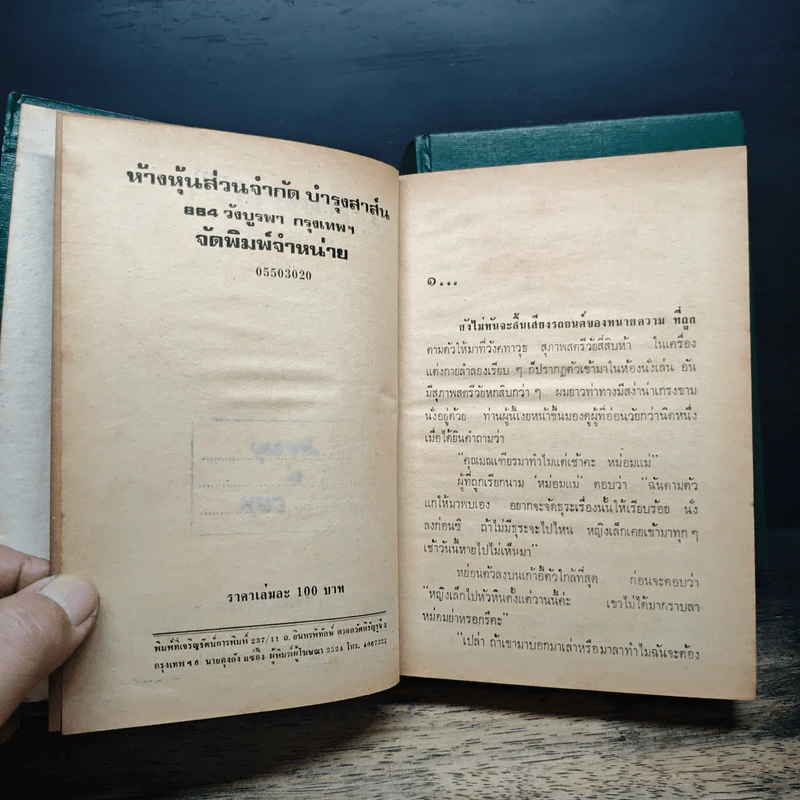 ห้างหุ้นส่วนจำกัด บำรุงสาส์น
864 วังบูรพา กรุงเทพฯ
จัดพิมพ์จำหน่าย
05503020
ราคาเล่มละ 100 บาท
พิมพ์ที่เจริญรัตน์การพิมพ์ 237/11 ถ. อินทรพิทักษ์ ตรอกวัดหิรัญรูจี
กรุงเทพ ฯ 6 นายคุงกัง แซ่อึ้ง ผู้พิมพ์ผู้โฆษณา 2524 โทร.
๑...
ยังไม่ทันจะสิ้นเสียงรถยนต์ของทนายความ ที่ถูก
ตามตัวให้มาที่วังคทาวุธ สุภาพสตรีวัยสี่สิบห้า ในเครื่อง
แต่งกายลำลองเรียบ ๆ ก็ปรากฏตัวเข้ามาในห้องนั่งเล่น อัน
มีสุภาพสตรีวัยหกสิบกว่า ๆ ผมยาวท่าทางมีสง่าน่าเกรงขาม
นั่งอยู่ด้วย ท่านผู้นี้เงยหน้าขึ้นมองดูผู้ที่อ่อนวัยกว่านิดหนึ่ง
เมื่อได้ยินคำถามว่า
"คุณมณเฑียรมาทำไมแต่เช้าคะ หม่อมแม่"
ผู้ที่ถูกเรียกนาม 'หม่อมแม่' ตอบว่า "ฉันตามตัว
แกให้มาพบเอง อยากจะจัดธุระเรื่องนั้นให้เรียบร้อย นั่ง
ลงก่อนซิ ถ้าไม่มีธุระจะไปไหน หญิงเล็กเคยเข้ามาทุก ๆ
เช้าวันนี้หายไปไม่เห็นมา"
หย่อนตัวลงบนเก้าอี้ตัวใกล้ที่สุด ก่อนจะตอบว่า
"หญิงเล็กไปหัวหินตั้งแต่วานนี้ค่ะ เขาไม่ได้มากราบลา
หม่อมย่าหรอกรึคะ"
"เปล่า ถ้าเขามาบอกมาเล่าหรือมาลาทำไมฉันจะต้อง